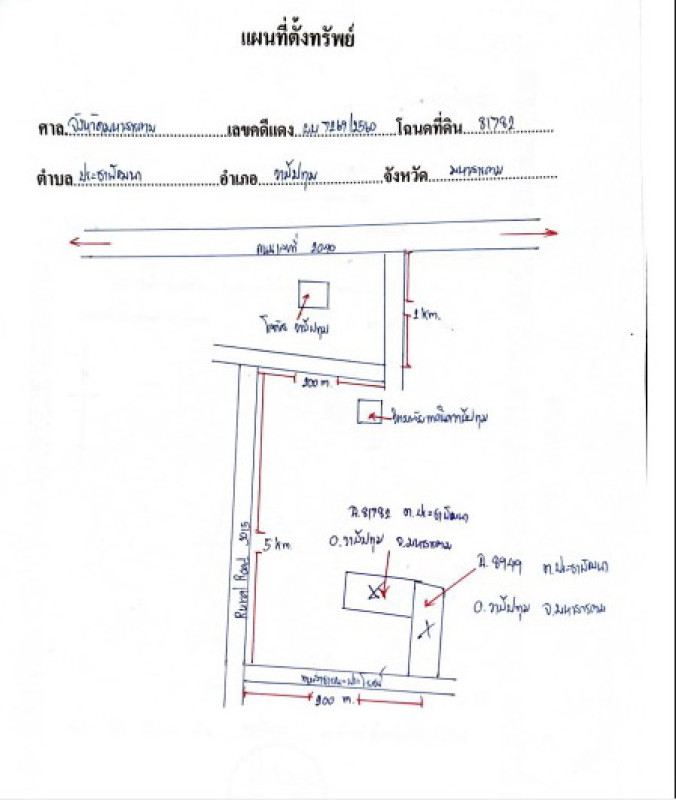 แผนที่ตั้งทรัพย์
ศาล จังหวัดมหาสารคาม เลขคดีแดง ผบ 7269/2560 โฉนดที่ดิน 81782
ตำบล ประชาพัฒนา อำเภอ วาปีปทุม จังหวัด มหาสารคาม
ถนนเลขที่ 2040
1 km.
โลตัส วาปีปทุม
200 m.
วาปีปทุม
ฉ.81782 ต.ประชาพัฒนา
อ.วาปีปทุม จ.มหาสารคาม
Rural Road 3015
5 km.
ฉ.8949 ต.ประชาพัฒนา
อ.วาปีปทุม จ.มหาสารคาม
ถนนสาธารณะประโยชน์
200 m.